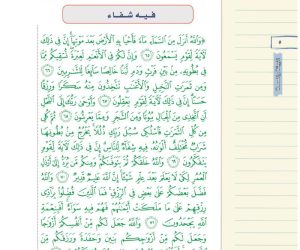 فيه شفاء
٥
﴿وَٱللَّهُ أَنزَلَ مِنَ ٱلسَّمَآءِ مَآءً فَأَحۡيَا بِهِ ٱلۡأَرۡضَ بَعۡدَ مَوۡتِهَآۚ إِنَّ فِي ذَٰلِكَ
لَأٓيَةٗ لِّقَوۡمٖ يَسۡمَعُونَ ٦٥ وَإِنَّ لَكُمۡ فِي ٱلۡأَنۡعَٰمِ لَعِبۡرَةٗۖ نُّسۡقِيكُم مِّمَّا
فِي بُطُونِهِۦ مِنۢ بَيۡنِ فَرۡثٖ وَدَمٖ لَّبَنًا خَالِصٗا سَآئِغٗا لِّلشَّٰرِبِينَ ٦٦
وَمِن ثَمَرَٰتِ ٱلنَّخِيلِ وَٱلۡأَعۡنَٰبِ تَتَّخِذُونَ مِنۡهُ سَكَرٗا وَرِزۡقًا
حَسَنًاۚ إِنَّ فِي ذَٰلِكَ لَأٓيَةٗ لِّقَوۡمٖ يَعۡقِلُونَ ٦٧ وَأَوۡحَىٰ رَبُّكَ إِلَى ٱلنَّحۡلِ
أَنِ ٱتَّخِذِي مِنَ ٱلۡجِبَالِ بُيُوتٗا وَمِنَ ٱلشَّجَرِ وَمِمَّا يَعۡرِشُونَ ٦٨ ثُمَّ كُلِي
مِن كُلِّ ٱلثَّمَرَٰتِ فَٱسۡلُكِي سُبُلَ رَبِّكِ ذُلُلٗاۚ يَخۡرُجُ مِنۢ بُطُونِهَا
شَرَابٞ مُّخۡتَلِفٌ أَلۡوَٰنُهُۥ فِيهِ شِفَآءٞ لِّلنَّاسِۚ إِنَّ فِي ذَٰلِكَ لَأٓيَةٗ لِّقَوۡمٖ
يَتَفَكَّرُونَ ٦٩ وَٱللَّهُ خَلَقَكُمۡ ثُمَّ يَتَوَفَّىٰكُمۡۚ وَمِنكُم مَّن يُرَدُّ إِلَىٰٓ أَرۡذَلِ
ٱلۡعُمُرِ لِكَيۡ لَا يَعۡلَمَ بَعۡدَ عِلۡمٖ شَيۡـًٔاۚ إِنَّ ٱللَّهَ عَلِيمٞ قَدِيرٞ ٧٠ وَٱللَّهُ
فَضَّلَ بَعۡضَكُمۡ عَلَىٰ بَعۡضٖ فِي ٱلرِّزۡقِۚ فَمَا ٱلَّذِينَ فُضِّلُواْ بِرَآدِّي
رِزۡقِهِمۡ عَلَىٰ مَا مَلَكَتۡ أَيۡمَٰنُهُمۡ فَهُمۡ فِيهِ سَوَآءٌۚ أَفَبِنِعۡمَةِ
ٱللَّهِ يَجۡحَدُونَ ٧١ وَٱللَّهُ جَعَلَ لَكُم مِّنۡ أَنفُسِكُمۡ أَزۡوَٰجٗا
وَجَعَلَ لَكُم مِّنۡ أَزۡوَٰجِكُم بَنِينَ وَحَفَدَةٗ وَرَزَقَكُم مِّنَ